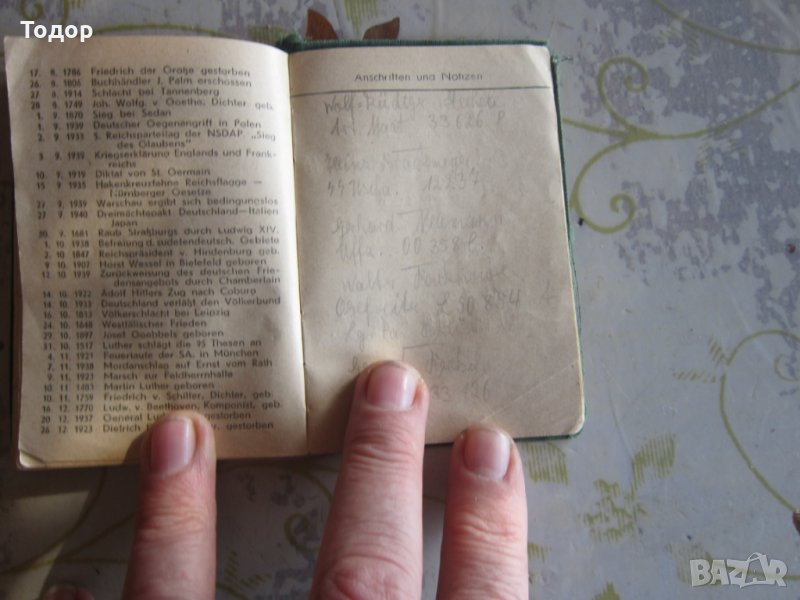 Тодор
17. 8. 1786 Friedrich der Große gestorben
26. 8. 1806 Buchhändler J. Palm erschossen
27. 8. 1914 Schlacht bei Tannenberg
28. 8. 1749 Joh. Wolfg. v. Goethe, Dichter, geb.
1. 9. 1870 Sieg bei Sedan
1. 9. 1939 Deutscher Gegenangriff in Polen
2. 9. 1933 5. Reichsparteitag der NSDAP. „Sieg
des Glaubens"
3. 9. 1939 Kriegserklärung Englands und Frank-
reichs
10. 9. 1919 Diktat von St. Germain
15. 9. 1935 Hakenkreuzfahne Reichsflagge —
Nürnberger Gesetze
27. 9. 1939 Warschau ergibt sich bedingungslos
27. 9. 1940 Dreimächtepakt Deutschland-Italien
Japan
30. 9. 1681 Raub Straßburgs durch Ludwig XIV.
1. 10. 1938 Befreiung d. sudetendeutsch. Gebiete
2. 10. 1847 Reichspräsident v. Hindenburg geb.
9. 10. 1907 Horst Wessel in Bielefeld geboren
12. 10. 1939 Zurückweisung des deutschen Frie-
densangebots durch Chamberlain
14. 10. 1922 Adolf Hitlers Zug nach Coburg
14. 10. 1933 Deutschland verläßt den Völkerbund
16. 10. 1813 Völkerschlacht bei Leipzig
24. 10. 1648 Westfälischer Frieden
29. 10. 1897 Josef Goebbels geboren
31. 10. 1517 Luther schlägt die 95 Thesen an
4. 11. 1921 Feuertaufe der SA. in München
7. 11. 1938 Mordanschlag auf Ernst vom Rath
9. 11. 1923 Marsch zur Feldherrnhalle
10. 11. 1483 Martin Luther geboren
10. 11. 1759 Friedrich v. Schiller, Dichter, geb.
16. 12. 1770 Ludw. v. Beethoven, Komponist, geb.
20. 12. 1937 General gestorben
26. 12. 1923 Dietrich gestorben
Anschriften und Notizen
33 626
12237
Gerhard Neumann
Uffz. 00 358
Walter
33 126
BAZAR